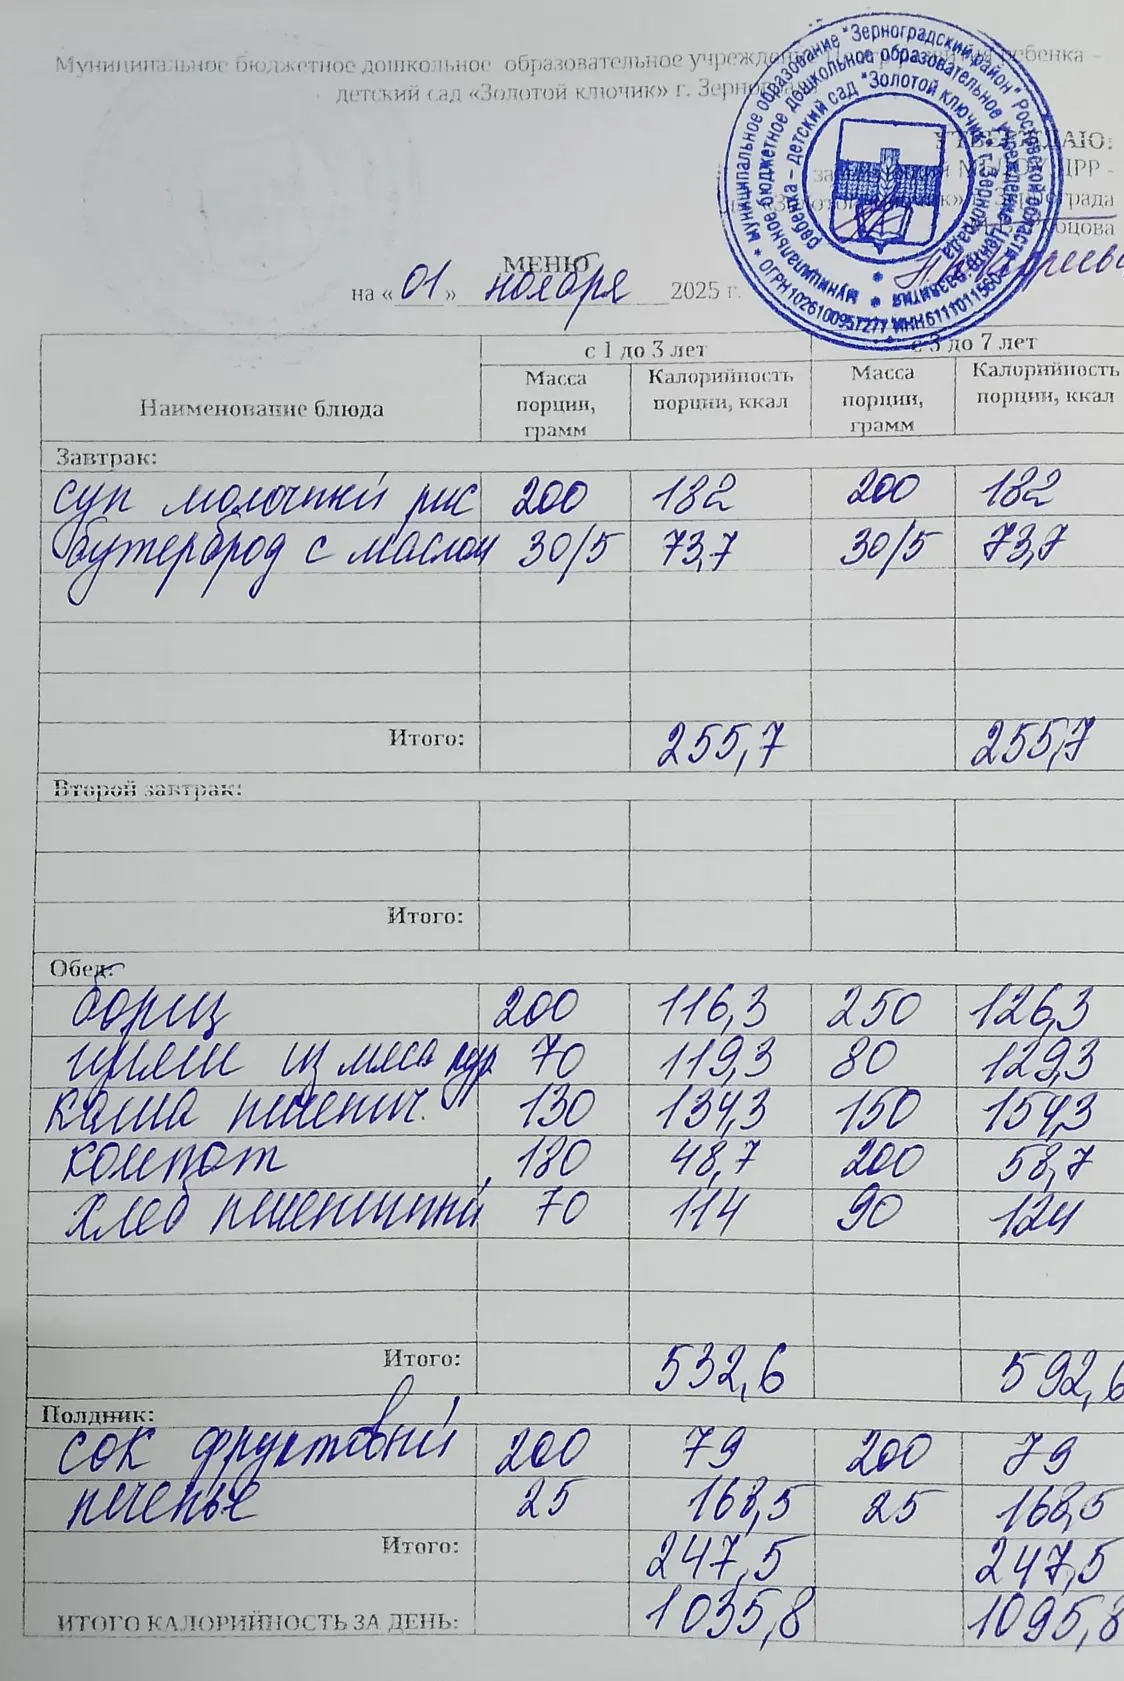 Муниципальное бюджетное дошкольное образовательное учреждение ребенка –
детский сад «Золотой ключик» г. Зернограда
УТВЕРЖДАЮ:
МБДОУ ЦРР -
«Золотой ключик» г. Зернограда
МЕНЮ
на « 01 » ноября 2025 г.
Муниципальное образование "Зерноградский район" Ростовской области
ОГРН 1026100957277 ИНН 6111011560
муниципальное бюджетное дошкольное образовательное учреждение Центр развития
ребенка – детский сад "Золотой ключик" г. Зернограда
Наименование блюда
с 1 до 3 лет
с 3 до 7 лет
Масса порции, грамм
Калорийность порции, ккал
Масса порции, грамм
Калорийность порции, ккал
Завтрак:
суп молочный рис 200 182 200 182
бутерброд с маслом 30/5 73,7 30/5 73,7
Итого: 255,7 255,7
Второй завтрак:
Итого:
Обед:
борщ 200 116,3 250 126,3
из мяса кур 70 119,3 80 129,3
каша пшенич. 130 134,3 150 154,3
компот 180 48,7 200 58,7
хлеб пшеничный 70 114 90 124
Итого: 532,6 592,6
Полдник:
сок фруктовый 200 79 200 79
печенье 25 168,5 25 168,5
Итого: 247,5 247,5
ИТОГО КАЛОРИЙНОСТЬ ЗА ДЕНЬ: 1035,8 1095,8